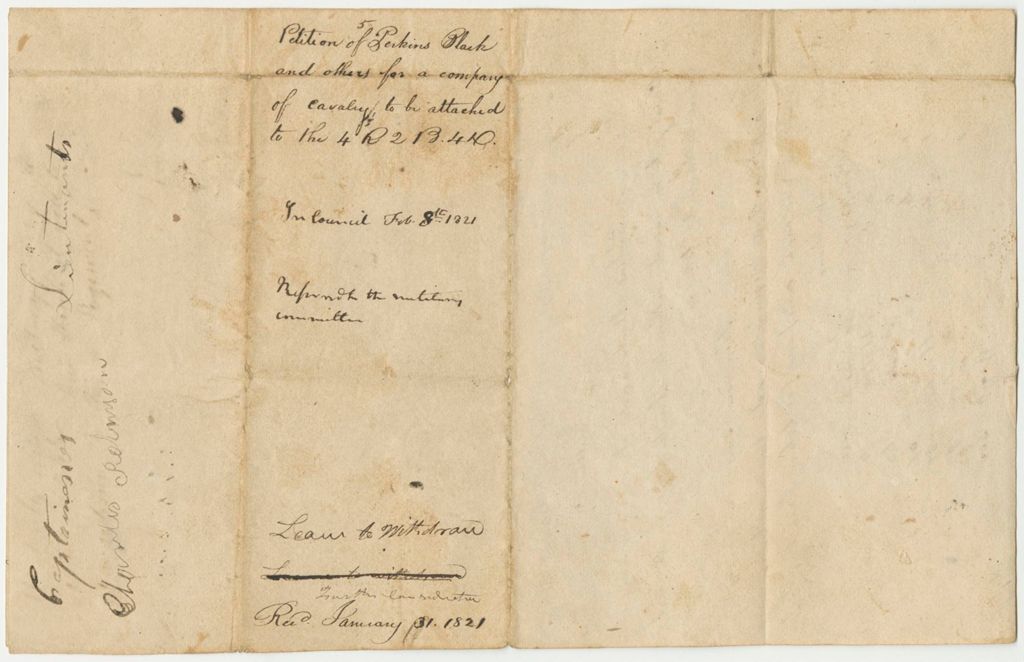 Petition of Perkins Black
and others for a company
of cavalry to be attached
to the 4 R 2 B. 4 D.
In Council Feb. 8th 1821
Refered to the military
committee
Leave to Withdraw
Leave to withdraw
Further Consideration
Recd. January 31. 1821
Captaines
Lieutenants
Charles Robinson